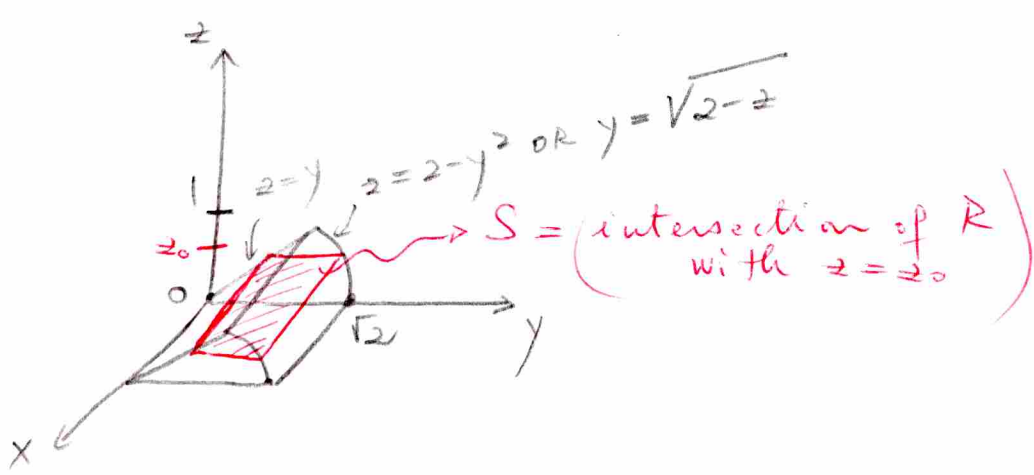 z
z = 2 - y² OR y = √2-z
1 z=y
z₀ S = (intersection of R
with z = z₀)
0
√2
y
x